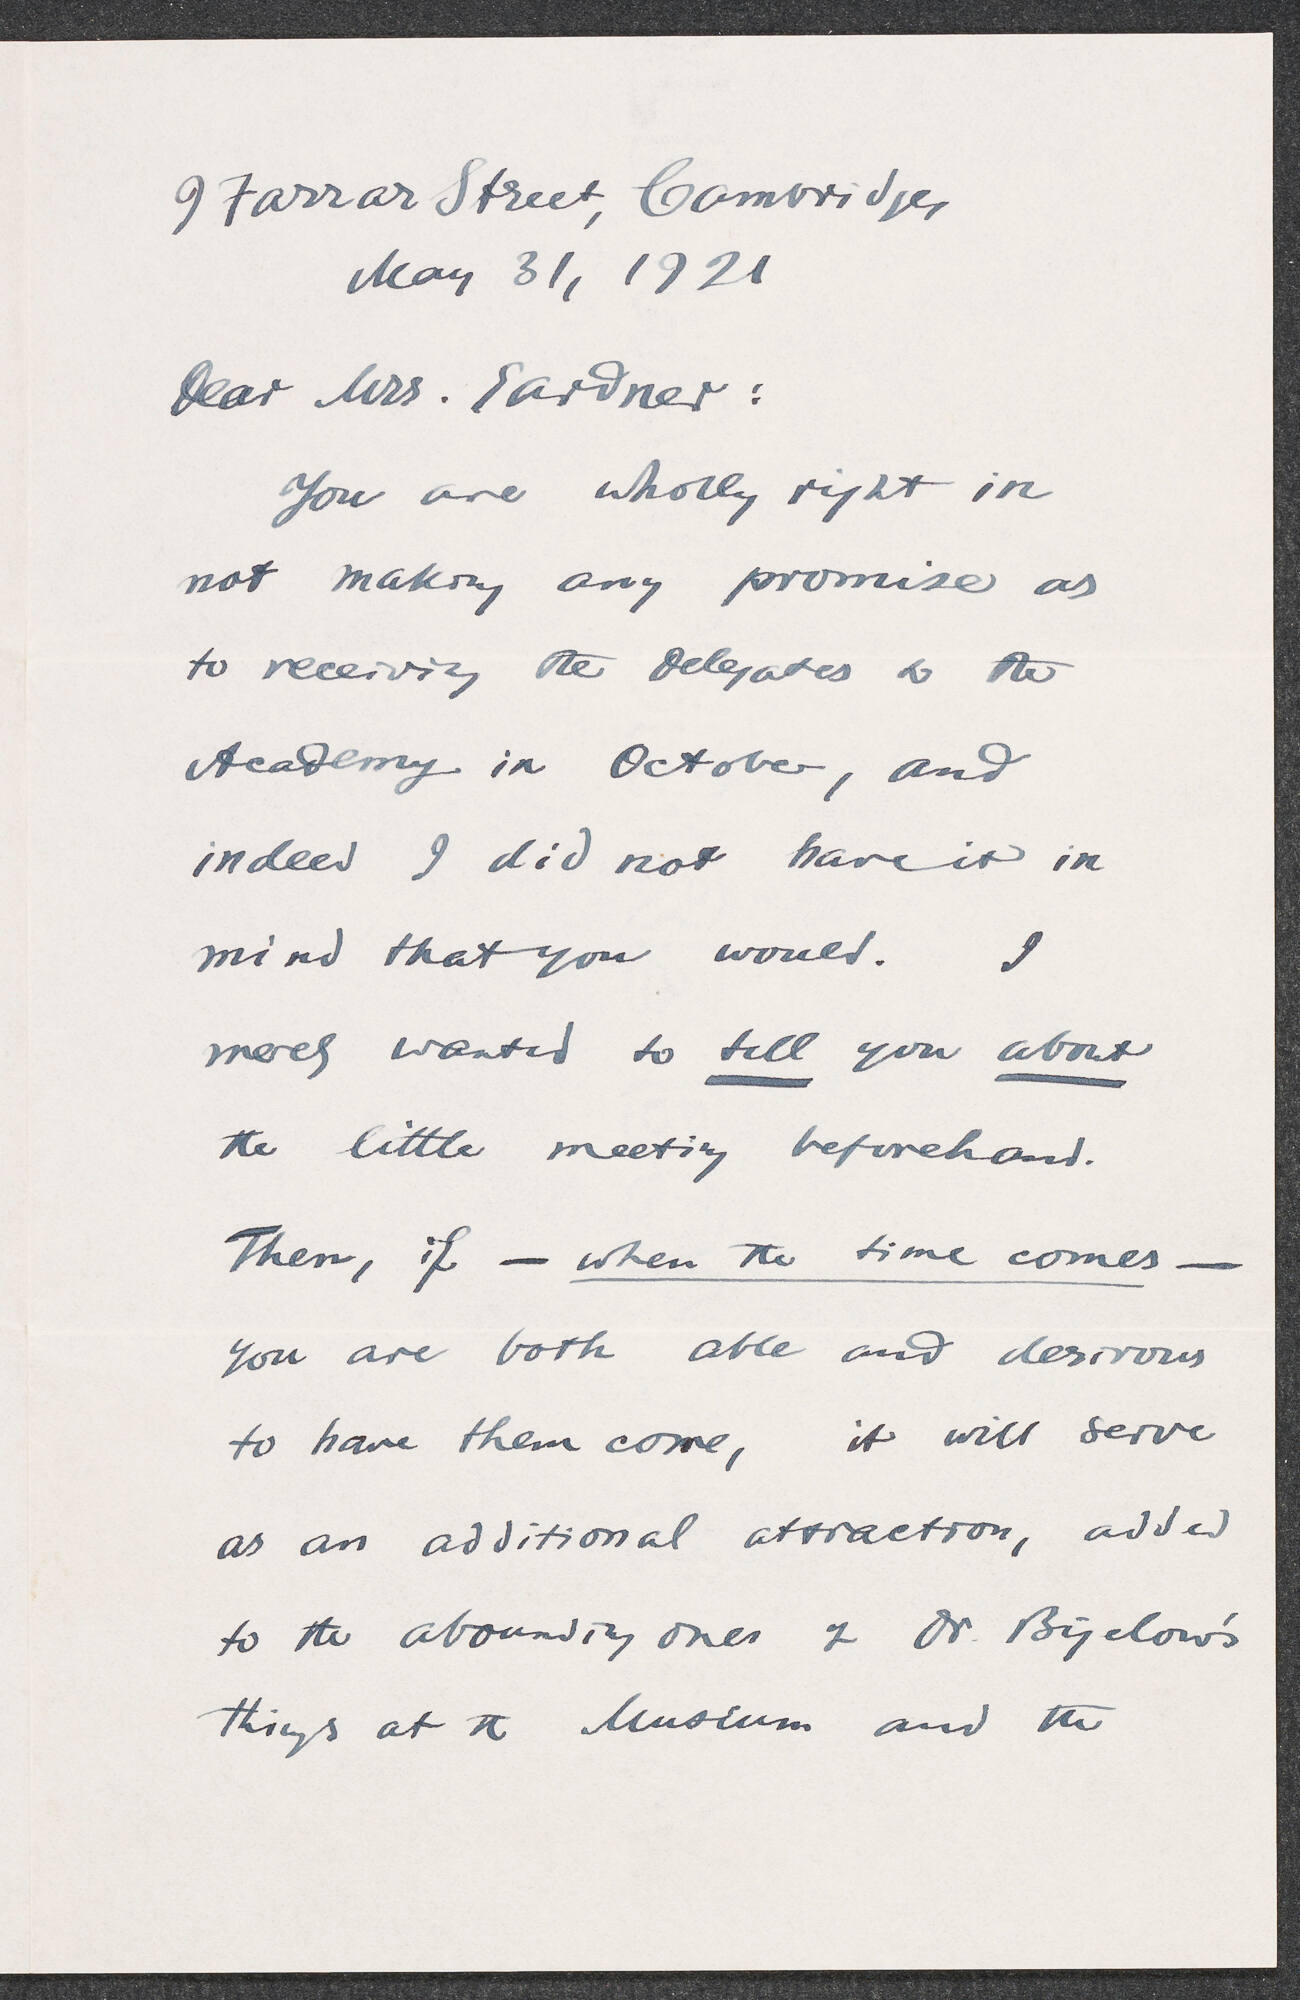 9 Farrar Street, Cambridge,
May 31, 1921
Dear Mrs. Gardner:
You are wholly right in
not making any promise as
to receiving the delegates to the
Academy in October, and
indeed I did not have it in
mind that you would. I
merely wanted to tell you about
the little meeting beforehand.
Then, if — when the time comes —
you are both able and desirous
to have them come, it will serve
as an additional attraction, added
to the abounding ones of Dr. Bigelow's
things at the Museum and the